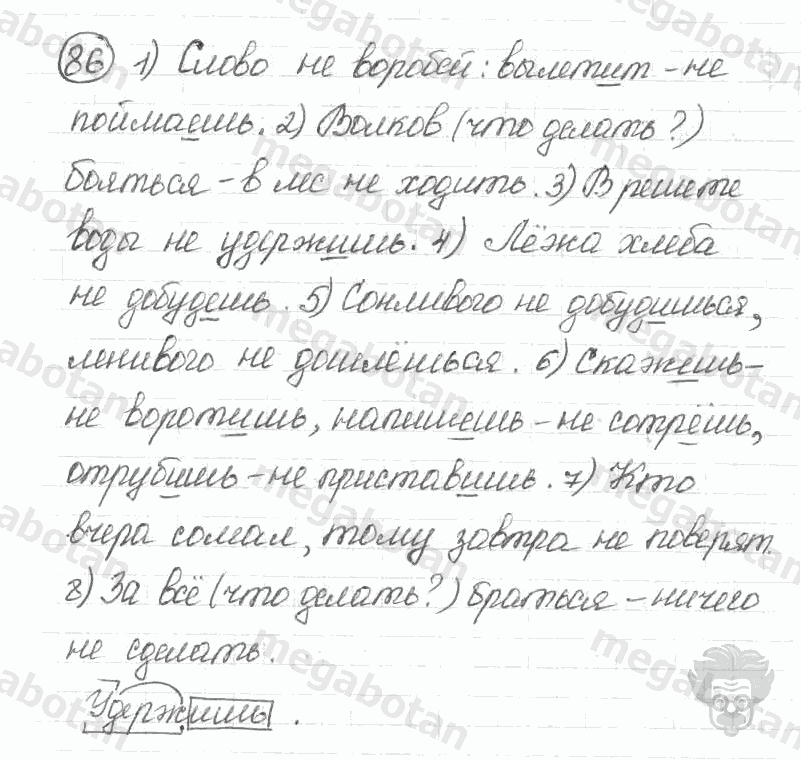 86 1) Слово не воробей: вылетит – не
поймаешь. 2) Волков (что делать?)
бояться – в лес не ходить. 3) В решете
воды не удержишь. 4) Лёжа хлеба
не добудешь. 5) Сонливого не добудишься,
ленивого не дошлёшься. 6) Скажешь –
не воротишь, напишешь – не сотрёшь,
отрубишь – не приставишь. 7) Кто
вчера солгал, тому завтра не поверят.
8) За всё (что делать?) браться – ничего
не сделать.
Удержишь.
megabotan